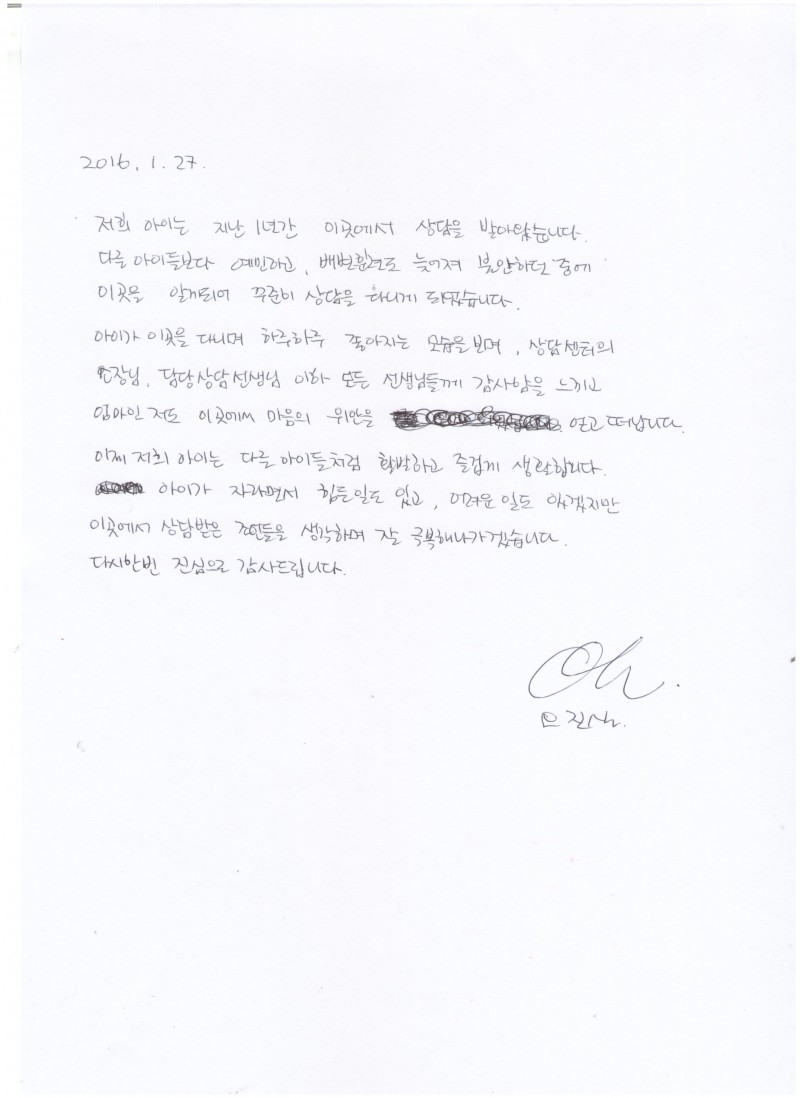 2016. 1. 27.
저희 아이는 지난 1년간 이곳에서 상담을 받아왔습니다.
다른 아이들보다 예민하고, 배변훈련도 늦어져 불안하던 중에
이곳을 알게되어 꾸준히 상담을 다니게 되었습니다.
아이가 이곳을 다니며 하루하루 좋아지는 모습을 보며, 상담센터의
소장님, 담당상담선생님 이하 모든 선생님들께 감사함을 느끼고
엄마인 저도 이곳에서 마음의 위안을 얻고 떠납니다.
이제 저희 아이는 다른 아이들처럼 활발하고 즐겁게 생활합니다.
아이가 자라면서 힘든일도 있고, 어려운 일도 있겠지만
이곳에서 상담받은 조언들을 생각하며 잘 극복해나가겠습니다.
다시한번 진심으로 감사드립니다.
Oh.